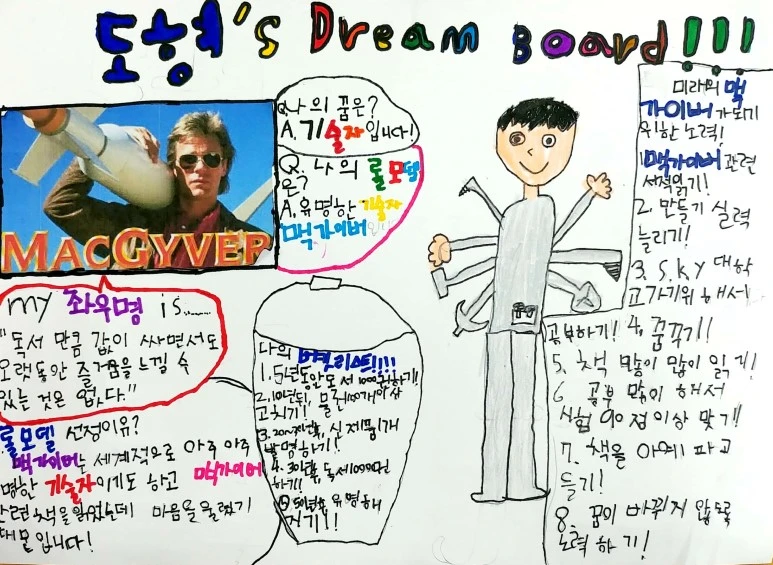 도형's Dream Board!!!
MACGYVER
Q. 나의 꿈은?
A. 기술자입니다!
Q. 나의 롤모델
은?
A. 유명한 기술자
맥가이버
my 좌우명 is......
"독서 만큼 값이 싸면서도
오랫동안 즐거움을 느낄 수
있는 것은 없다."
롤모델 선정이유?
맥가이버는 세계적으로 아주 아주
명한 기술자이기도 하고 맥가이버
관련 책을 읽었는데 마음을 울렸기
때문입니다!
나의 버킷리스트!!!!
1. 5년동안 독서 1000권하기!
2. 10년뒤, 물건 100개이상
고치기!
3. 20년후, 신제품 1개
발명하기!
4. 30년후, 독서 10000권
하기!
5. 50년후 유명해
지기!!
미래의 맥
가이버가 되기
위한 노력!
1. 맥가이버 관련
서적읽기!
2. 만들기 실력
늘리기!
3. S.K.Y 대학
고 가기위해서
공부하기! 4. 꿈꾸기!!
5. 책 많이 많이 읽기!
6. 공부 많이 해서
시험 90점이상 맞기!
7. 책을 아예 파고
들기!
8. 꿈이 바뀌지 않도록
노력하기!